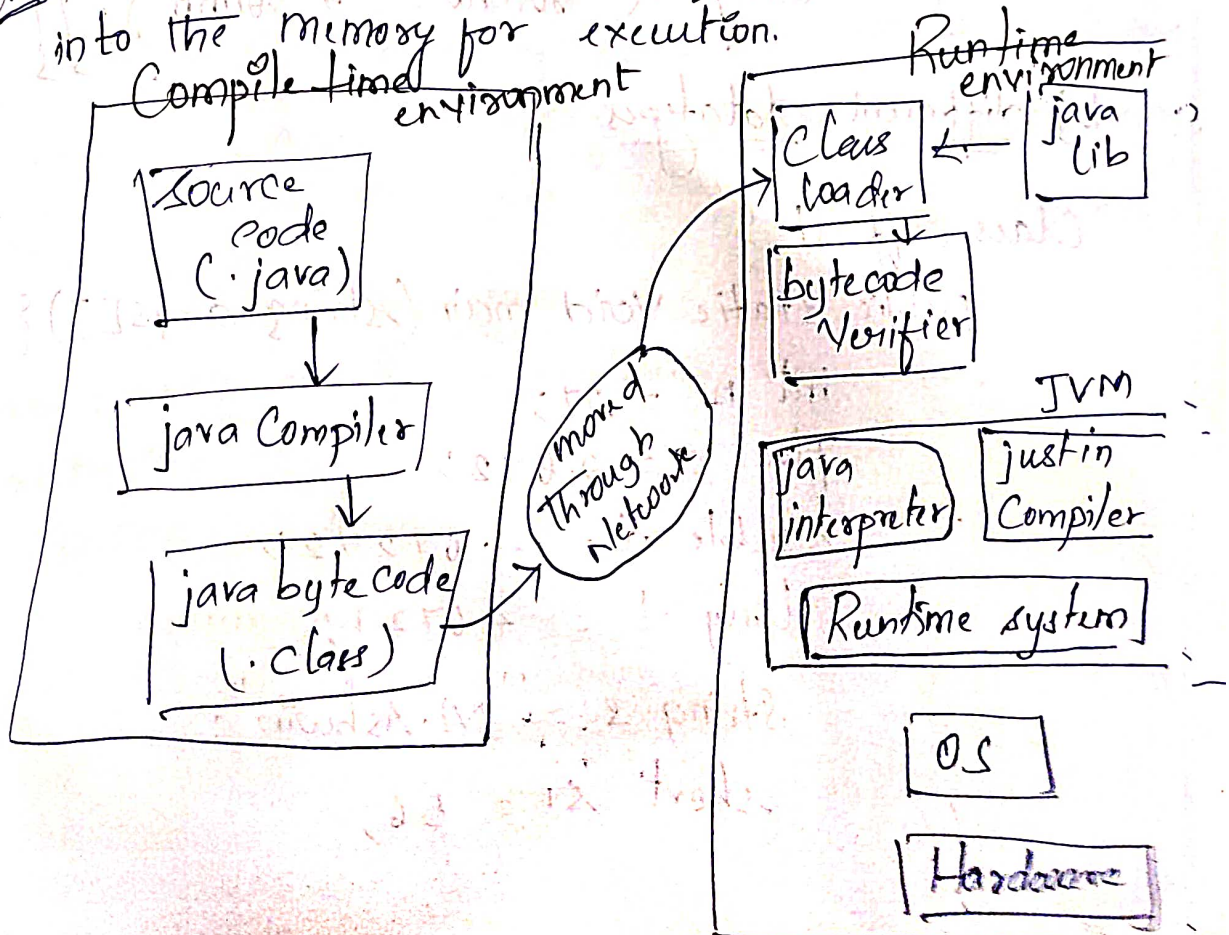 into the memory for execution.
Compile time
environment
source
code
(.java)
java Compiler
java byte code
(.class)
moved
through
network
Runtime
environment
Class
loader
java
lib
bytecode
Verifier
JVM
java
interpreter
just in
Compiler
Runtime system
OS
Hardware